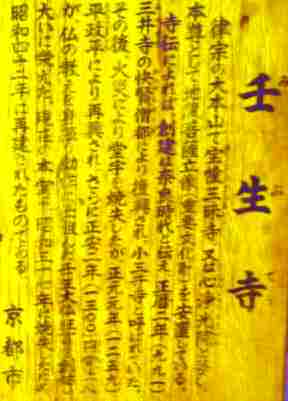 壬生寺
みぶでら
律宗の大本山で宝幢三昧寺、又は心浄光院と号し
本尊として地蔵菩薩立像(重要文化財)を安置している。
寺伝によれば、創建は奈良時代と伝え、正暦二年(九九一)
三井寺の快賢僧都により復興され、小三井寺と呼ばれていた。
その後、火災により堂宇を焼失したが、正元元年(一二五九)
平政平により再興され、さらに正安二年(一三〇〇)
が仏の教えを身
大いに栄えた。現在、本堂は、昭和三十七年に焼失したため
昭和四十二年に再建されたものである。
京都市